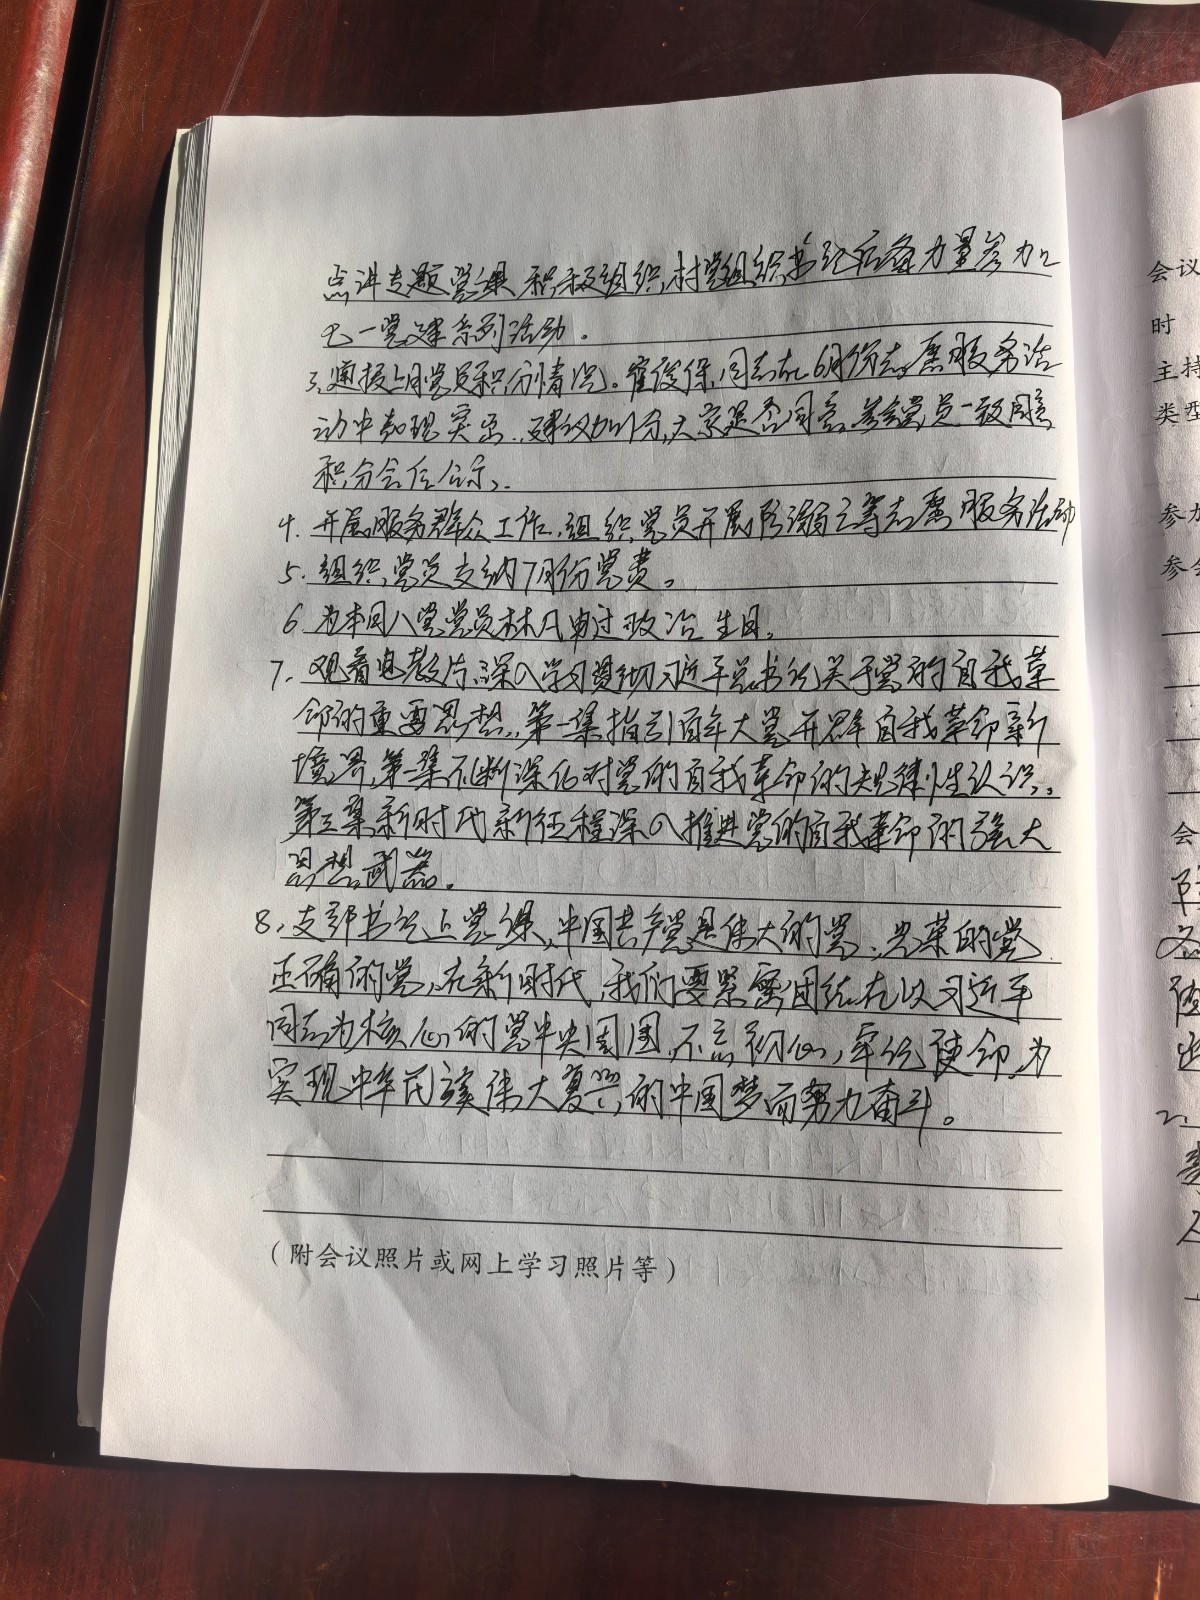 点讲专题党课,积极组织村党组织书记后备力量参加
七一党建系列活动。
3、通报上月党员积分情况。霍俊保同志在6月份志愿服务活
动中表现突出,建议加1分,大家是否同意,参会党员一致同意
积分会后公示。
4、开展服务群众工作,组织党员开展防溺亡等志愿服务活动
5、组织党员交纳7月份党费。
6、为本月入党党员 过政治生日。
7、观看电教片,深入学习贯彻习近平总书记关于党的自我革
命的重要思想,第一集指引百年大党开辟自我革命新
境界,第二集不断深化对党的自我革命的规律性认识。
第三集新时代新征程深入推进党的自我革命的强大
思想武器。
8、支部书记上党课,中国共产党是伟大的党,光荣的党
正确的党,在新时代,我们要紧密团结在以习近平
同志为核心的党中央周围,不忘初心,牢记使命,为
实现中华民族伟大复兴的中国梦而努力奋斗。
(附会议照片或网上学习照片等)
会议
时
主持
类型
参加
参会
会
2、